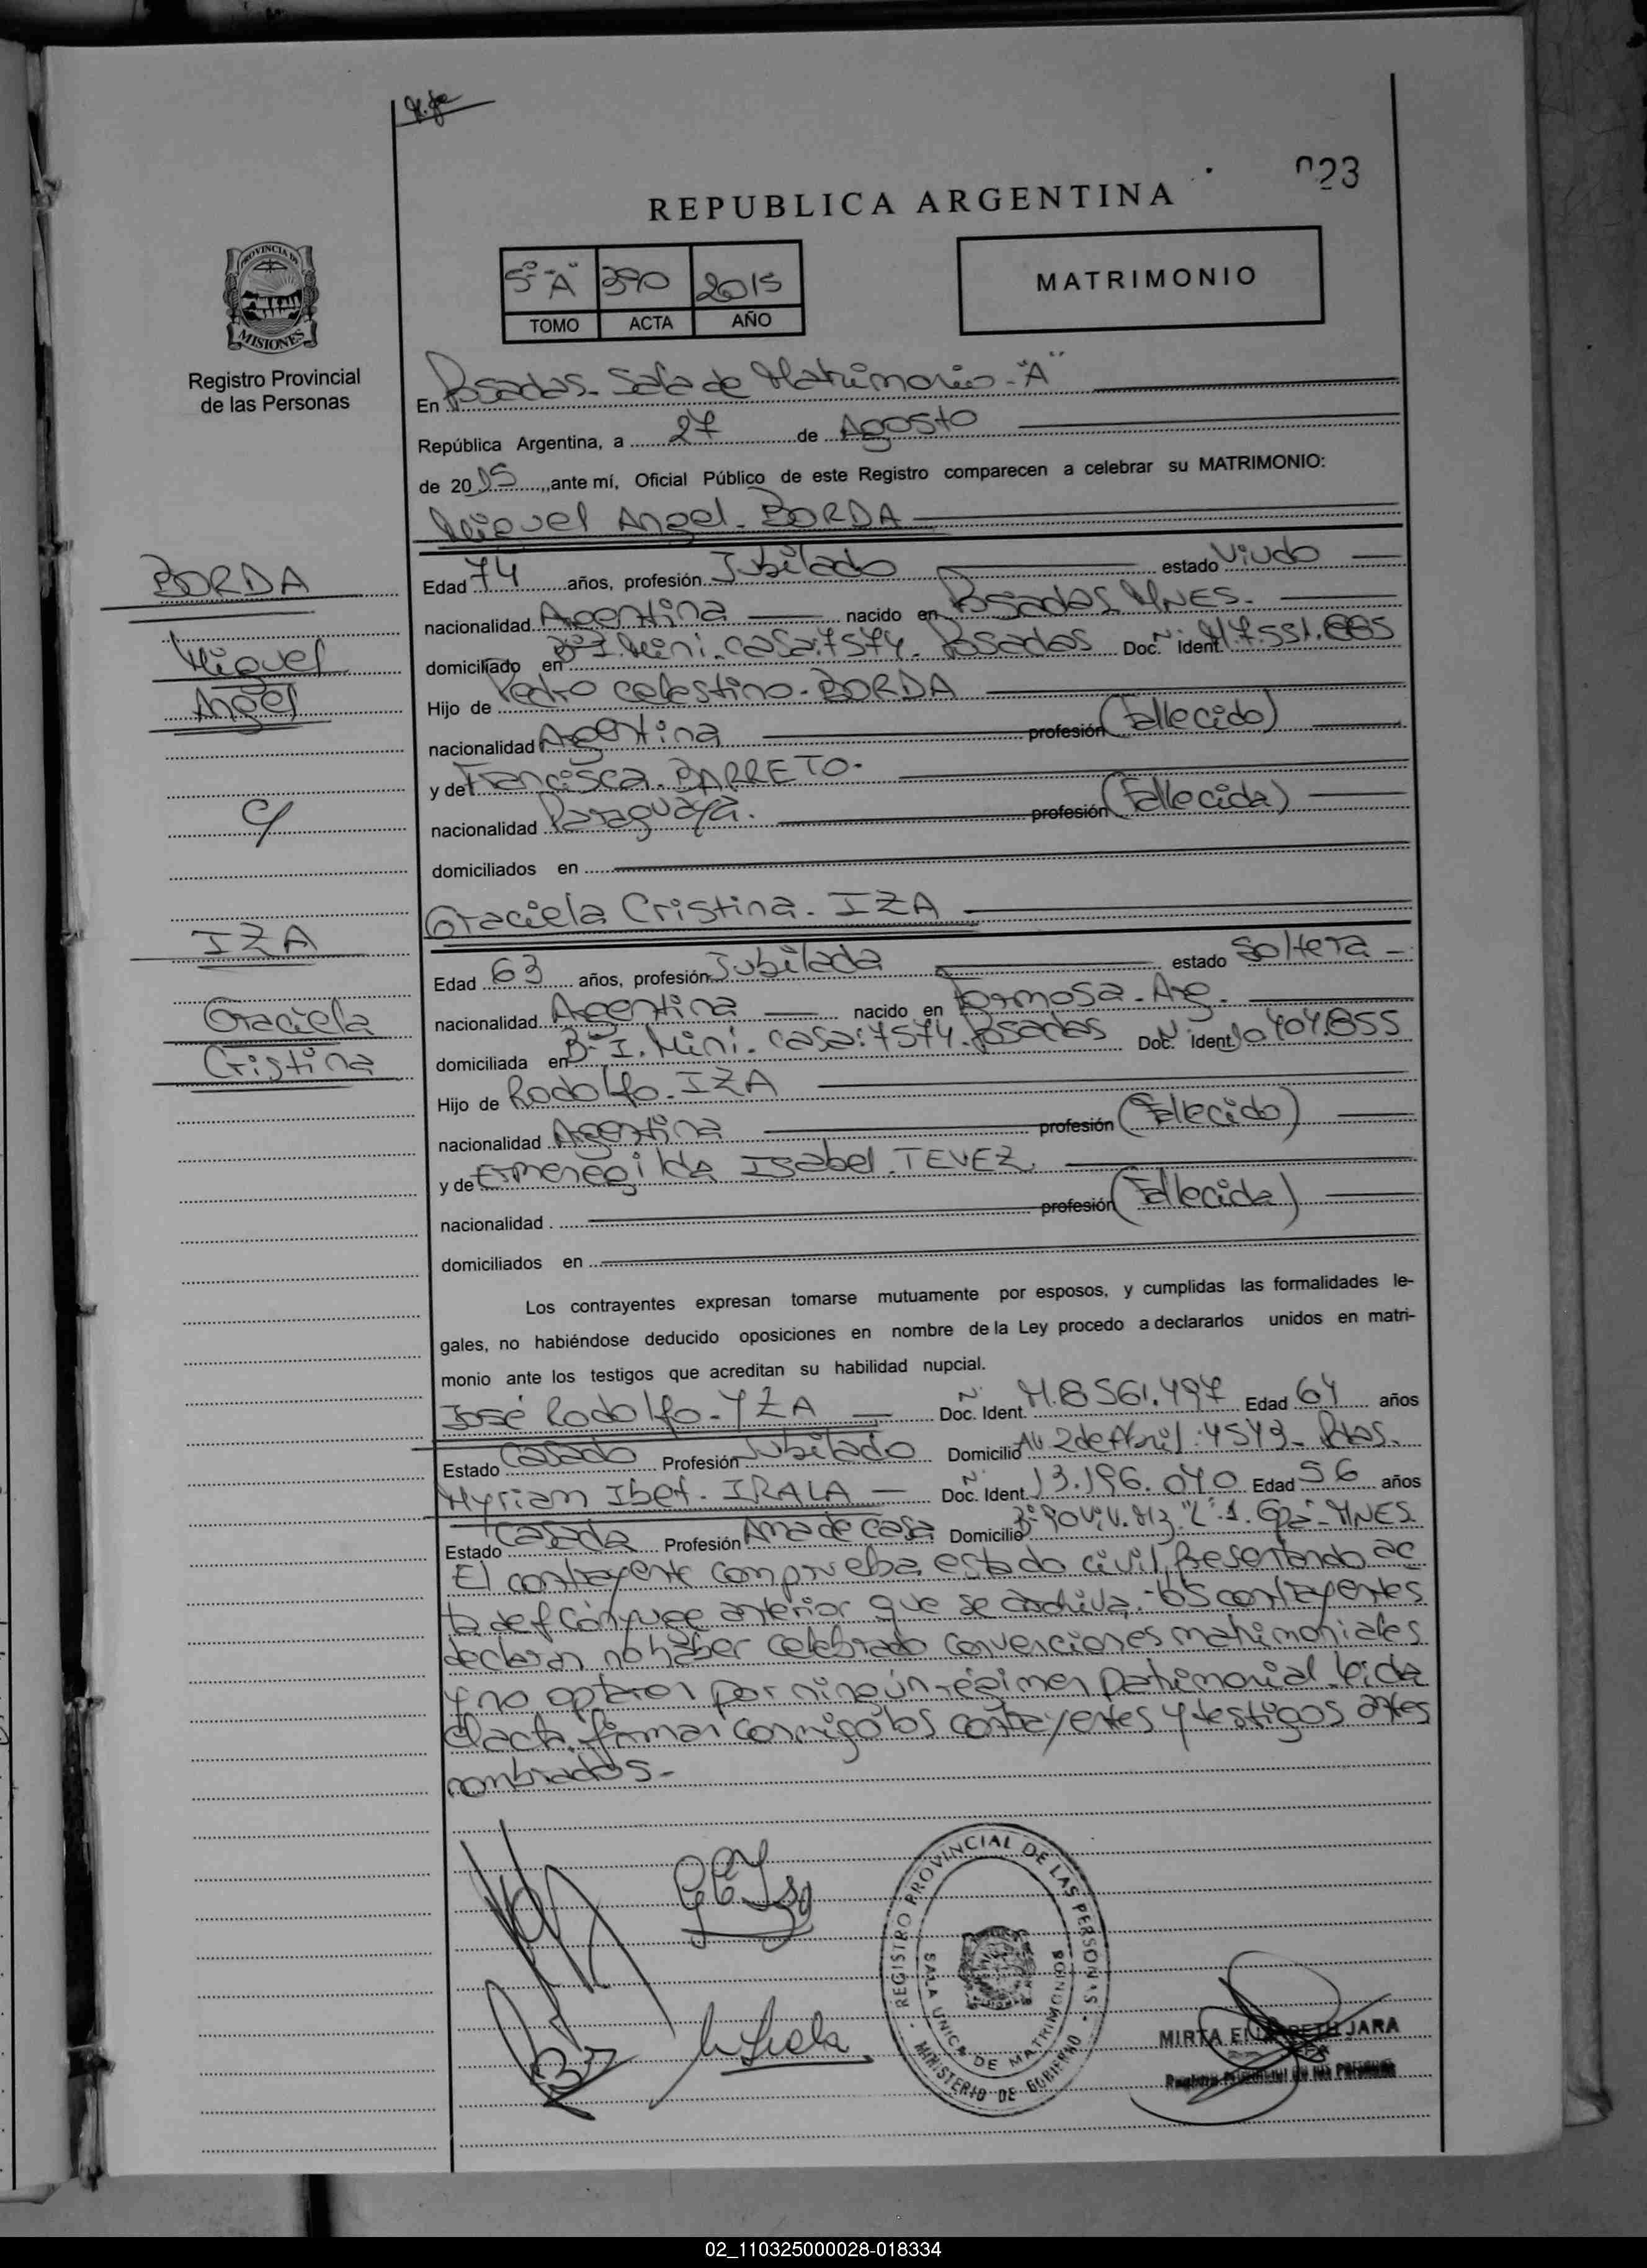 023
REPUBLICA ARGENTINA
5º "A" 390 2015
TOMO ACTA AÑO
MATRIMONIO
PROVINCIA DE
MISIONES
Registro Provincial
de las Personas
En Posadas. Sala de Matrimonio - "A"
República Argentina, a 27 de Agosto
de 2015, ante mí, Oficial Público de este Registro comparecen a celebrar su MATRIMONIO:
Miguel Angel. BORDA
BORDA
Miguel
Angel
Edad 74 años, profesión Jubilado estado Viudo
nacionalidad Argentina nacido en Posadas. MNES.
domiciliado en Bº I. Mini. casa: 7574. Posadas Doc. Ident. M.7.551.885
Hijo de Pedro Celestino. BORDA
nacionalidad Argentina profesión (Fallecido)
y de Francisca. BARRETO.
nacionalidad Paraguaya. profesión (Fallecida)
c/
domiciliados en
Graciela Cristina. IZA
IZA
Graciela
Cristina
Edad 63 años, profesión Jubilada estado Soltera
nacionalidad Argentina nacido en Formosa. Arg.
domiciliada en Bº I. Mini. casa: 7574. Posadas Doc. Ident. 10.404.855
Hijo de Rodolfo. IZA
nacionalidad Argentina profesión (Fallecido)
y de Ermenegilda Isabel. TEVEZ.
nacionalidad profesión (Fallecida)
domiciliados en
Los contrayentes expresan tomarse mutuamente por esposos, y cumplidas las formalidades le-
gales, no habiéndose deducido oposiciones en nombre de la Ley procedo a declararlos unidos en matri-
monio ante los testigos que acreditan su habilidad nupcial.
José Rodolfo. YZA Doc. Ident. M.8.561.497 Edad 64 años
Estado Casado Profesión Jubilado Domicilio Av. 2 de Abril: 4543. Pdas.
Myrian Ibef. IRALA Doc. Ident. 13.196.040 Edad 56 años
Estado Casada Profesión Ama de casa Domicilio Bº 90 Viv. Mz. "L". 1. Gpá. MNES
El contrayente comprueba estado civil, presentando ac
ta def cónyuge anterior que se archiva. Los contrayentes
declaran no haber celebrado convenciones matrimoniales
y no optaron por ningún régimen patrimonial. Leida
el acta, firman conmigo los contrayentes y testigos antes
nombrados.
REGISTRO PROVINCIAL DE LAS PERSONAS
SALA UNICA DE MATRIMONIOS
MINISTERIO DE GOBIERNO
MIRTA ELIZABETH JARA
Registro Provincial de las Personas
02_110325000028-018334